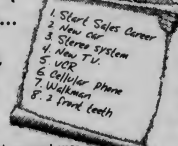 1. Start Sales Career
2. New car
3. Stereo system
4. New T.V.
5. VCR
6. Cellular phone
7. Walkman
8. 2 front teeth